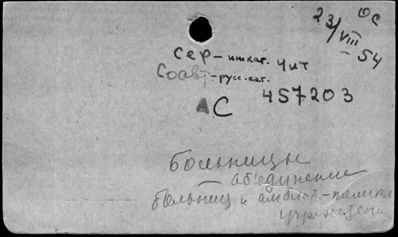 ОС
23/VIII-54
Сер-инкат. Чит
Соавт-русс.кат.
АС 457203
Больницы
объединение
больниц и амбул.-поликл.
учрежден